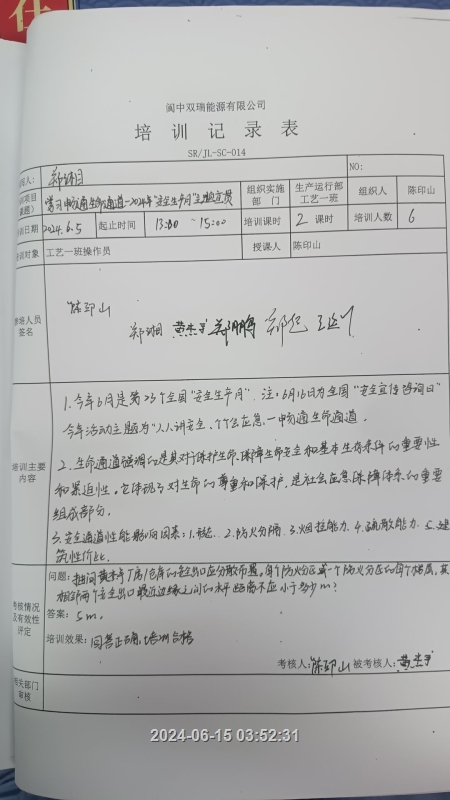 任
阆中双瑞能源有限公司
培 训 记 录 表
SR/JL-SC-014
郑湘 NO:
学习畅通生命通道-2024年"安全生产月"主题宣贯 组织实施部 门 生产运行部工艺一班 组织人 陈印山
培训日期 2024.6.5 起止时间 13:00 ~15:00 培训课时 2 课时 培训人数 6
培训对象 工艺一班操作员 授课人 陈印山
参培人员签名
陈印山
郑湘 黄杰 郑鹏
培训主要内容
1.今年6月是第23个全国"安全生产月". 注:6月16日为全国"安全宣传咨询日"
今年活动主题为"人人讲安全、个个会应急—畅通生命通道.
2、生命通道强调的是其对于保护生命、保障生命安全和基本生存条件的重要性
和紧迫性。它体现了对生命的尊重和保护,是社会应急保障体系的重要
组成部分.
3.安全通道性能影响因素:1. 2.防火分隔. 3.烟控能力. 4.疏散能力. 5.建
筑性价比.
考核情况及有效性评定
问题: 抽问黄杰 厂房/仓库的安全出口应分散布置。每个防火分区或一个防火分区的每个楼层,其
相邻两个安全出口最近边缘之间的水平距离不应小于多少m?
答案: 5m.
培训效果: 回答正确,培训合格
考核人: 陈印山 被考核人: 黄杰
相关部门审核
2024-06-15 03:52:31